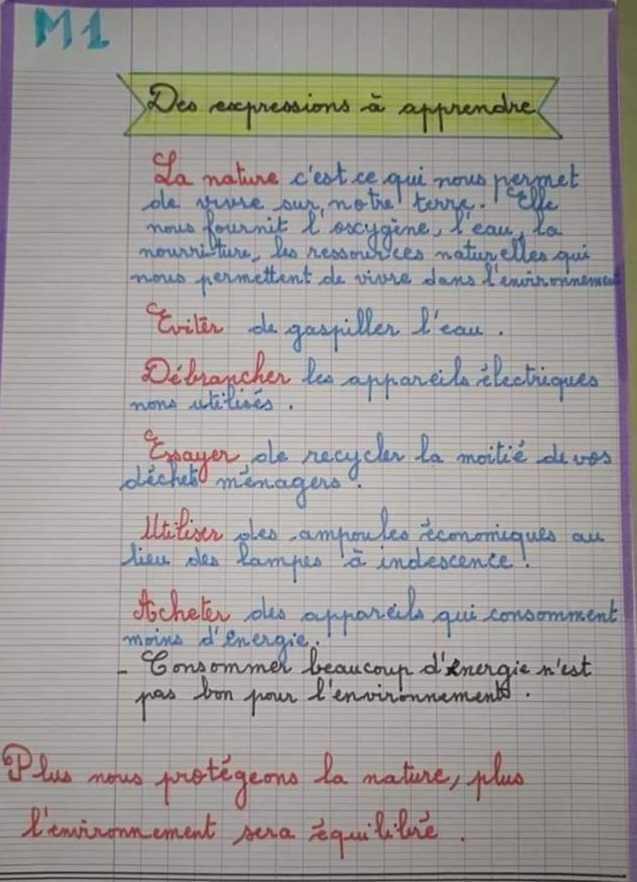 M1
Des expressions à apprendre
La nature c'est ce qui nous permet
de vivre sur notre terre. Elle
nous fournit l'oscygène, l'eau, la
nourriture, les ressources naturelles qui
nous permettent de vivre dans l'environnement
Eviter de gaspiller l'eau.
Débrancher les appareils électriques
nons utilisés.
Essayer de recycler la moitié de vos
déchets ménagers.
Utiliser des ampoules économiques au
lieu des lampes à indescence.
Acheter des appareils qui consomment
moins d'énergie.
- Consommer beaucoup d'énergie n'est
pas bon pour l'environnement.
Plus nous protégeons la nature, plus
l'environnement sera équilibré.